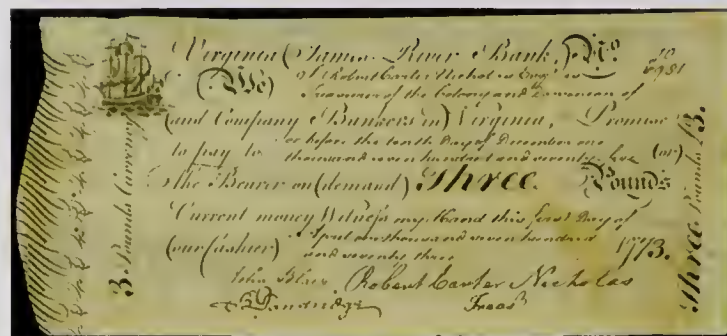 Virginia (James River Bank,) No
(We) I Robert Carter Nicholas Esqr. as
Treasurer of the Colony and Dominion of
(and Company Bankers in) Virginia, Promise
to pay to or before the tenth Day of December one
thousand seven hundred and seventy five (or)
the Bearer on (demand) Three Pounds
Current money Witness my Hand this first Day of
(our Cashier) April one thousand seven hundred
and seventy three 1773.
John Blair Robert Carter Nicholas
Treasr
3 Pounds Currency
Three Pounds 3.